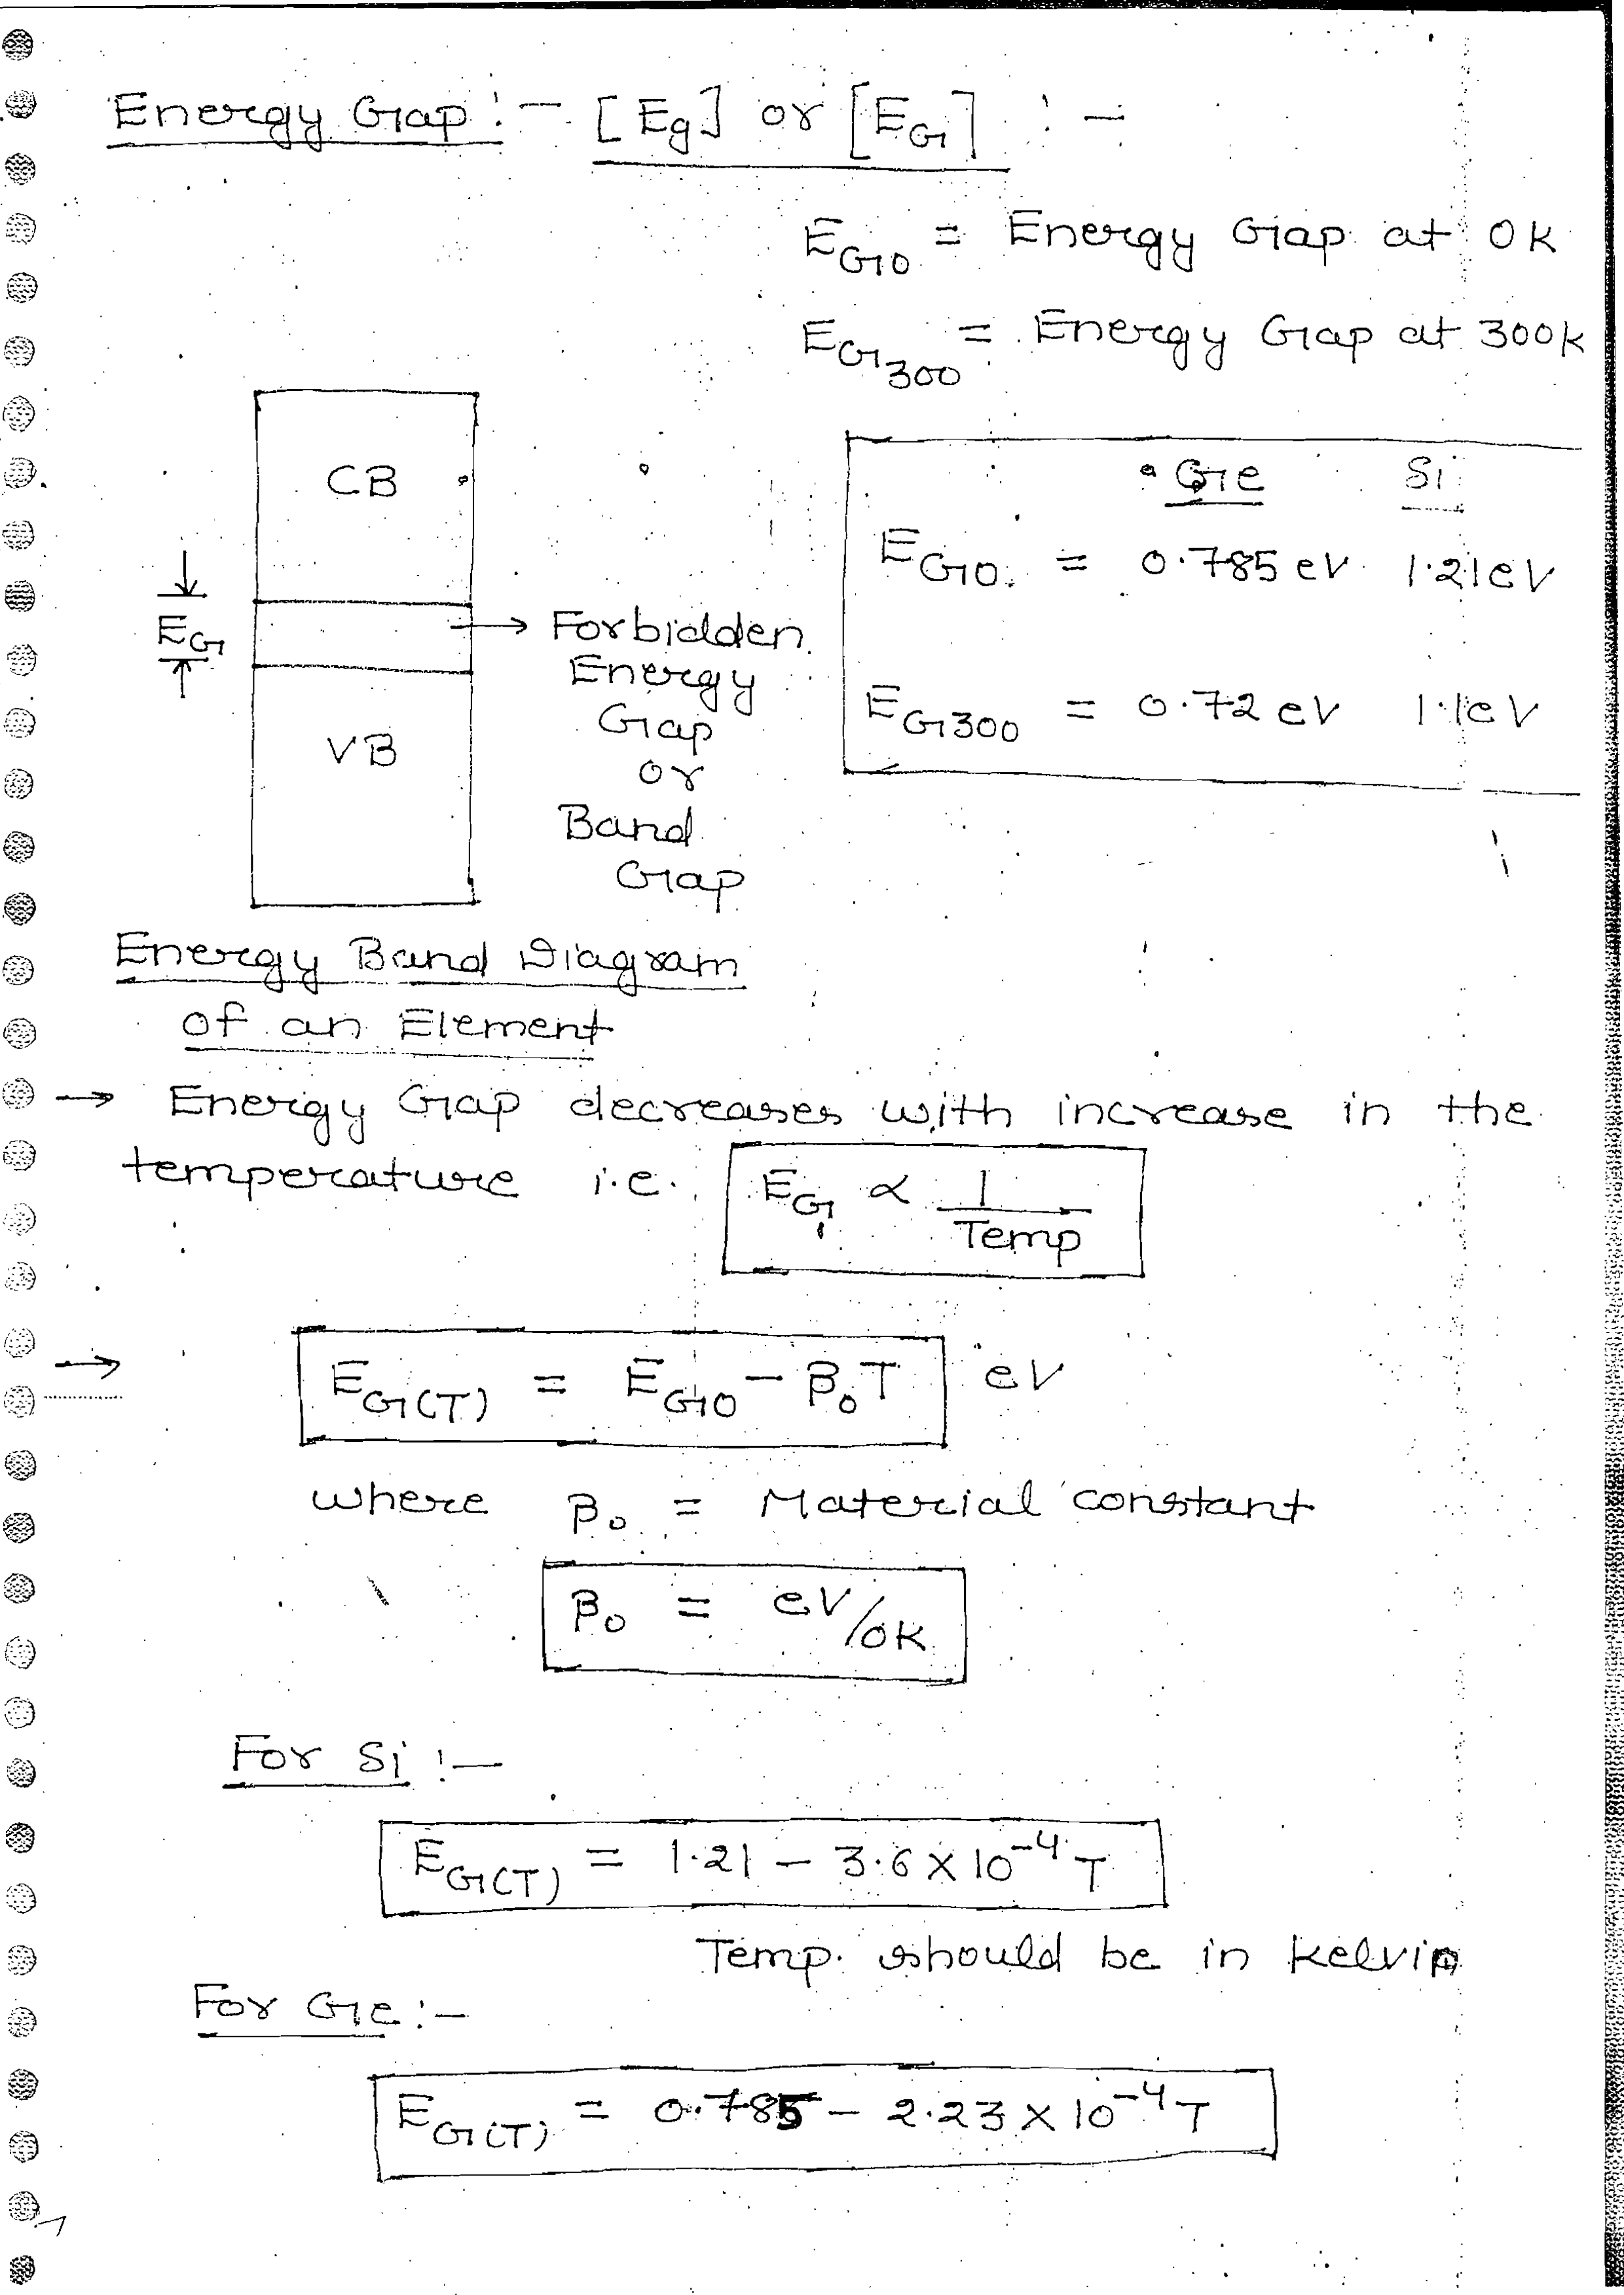 Energy Gap :- [Eg] or [EG] :-
EG0 = Energy Gap at 0K
EG300 = Energy Gap at 300K
CB
EG
VB
→ Forbidden
Energy
Gap
or
Band
Gap
Ge Si
EG0 = 0.785 eV 1.21eV
EG300 = 0.72 eV 1.1eV
Energy Band Diagram
of an Element
→ Energy Gap decreases with increase in the
temperature i.e. EG ∝ 1/Temp
→ EG(T) = EG0 - β₀T eV
where β₀ = Material constant
β₀ = eV/°K
For Si :-
EG(T) = 1.21 - 3.6 × 10⁻⁴ T
Temp. should be in Kelvin
For Ge :-
EG(T) = 0.785 - 2.23 × 10⁻⁴ T